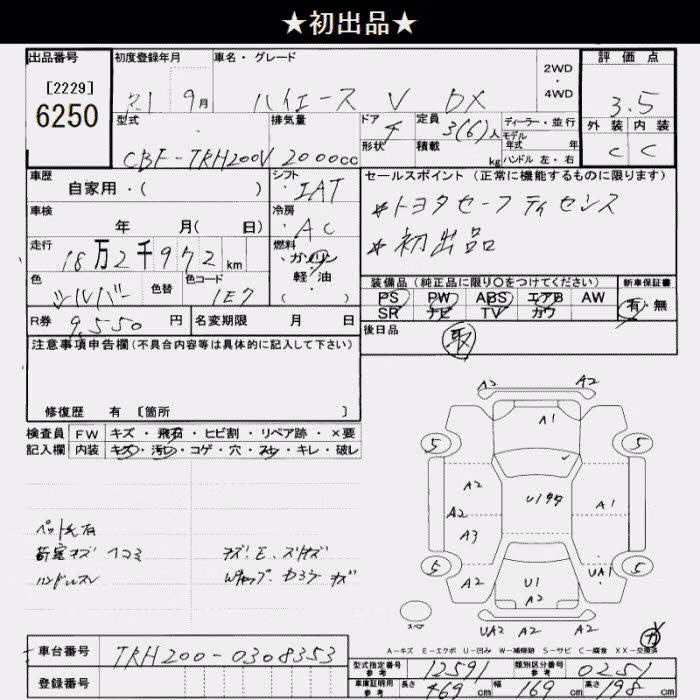 ★初出品★
出品番号
[2229]
6250
初度登録年月
21 9月
車名・グレード
ハイエース V DX
2WD
・
4WD
評価点
3.5
外装 内装
C C
型式
CBF-TRH200V
排気量
2000cc
ドア
形状
定員
3(6)人
積載
kg
ディーラー・並行
モデル
年式 年
ハンドル 左・右
車歴
自家用・( )
シフト
IAT
車検
年 月( 日)
冷房
AC
走行
18万2千972km
燃料
ガソリン
軽・油
( )
色
シルバー
色替
色コード
1E7
R券
9,550円
名変期限 月 日
セールスポイント(正常に機能するものに限ります)
*トヨタセーフティセンス
*初出品
装備品(純正品に限り○をつけてください)
PS PW ABS エアB AW
SR ナビ TV カワ
新車保証書
有・無
後日品
取
注意事項申告欄(不具合内容等は具体的に記入して下さい)
修復歴 有 [箇所 ]
検査員
記入欄
FW キズ・飛石・ヒビ割・リペア跡・×要
内装 キズ・汚レ・コゲ・穴・スレ・キレ・破レ
荷室キズ ヘコミ
ハンドルスレ
A2 A2
A1
5 5
A2
A2
A3
A2
A1
UA1
5 5
U1
A2
UA2 A2 A2
スペア
A-キズ E-エクボ U-凹み W-補修跡 S-サビ C-腐食 XX-交換済
車台番号
TRH200-0308353
登録番号
型式指定番号
参考
12591
類別区分番号
参考
0251
車庫証明用
参考
長さ 469cm 幅 169cm 高さ 198cm